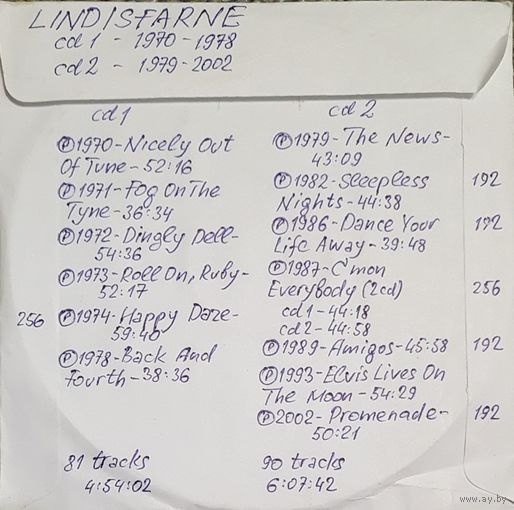 LINDISFARNE
cd 1 - 1970-1978
cd 2 - 1979-2002
cd 1
Ⓟ1970-Nicely Out
Of Tune-52:16
Ⓟ1971-Fog On The
Tyne-36:34
Ⓟ1972-Dingly Dell-
54:36
Ⓟ1973-Roll On, Ruby-
52:17
256 Ⓟ1974-Happy Daze-
59:40
Ⓟ1978-Back And
Fourth-38:36
81 tracks
4:54:02
cd 2
Ⓟ1979-The News-
43:09
Ⓟ1982-Sleepless 192
Nights-44:38
Ⓟ1986-Dance Your 192
Life Away-39:48
Ⓟ1987-C'mon
Everybody (2cd) 256
cd1-44:18
cd2-44:58
Ⓟ1989-Amigos-45:58 192
Ⓟ1993-Elvis Lives On
The Moon-54:29
Ⓟ2002-Promenade- 192
50:21
90 tracks
6:07:42
www.ay.by